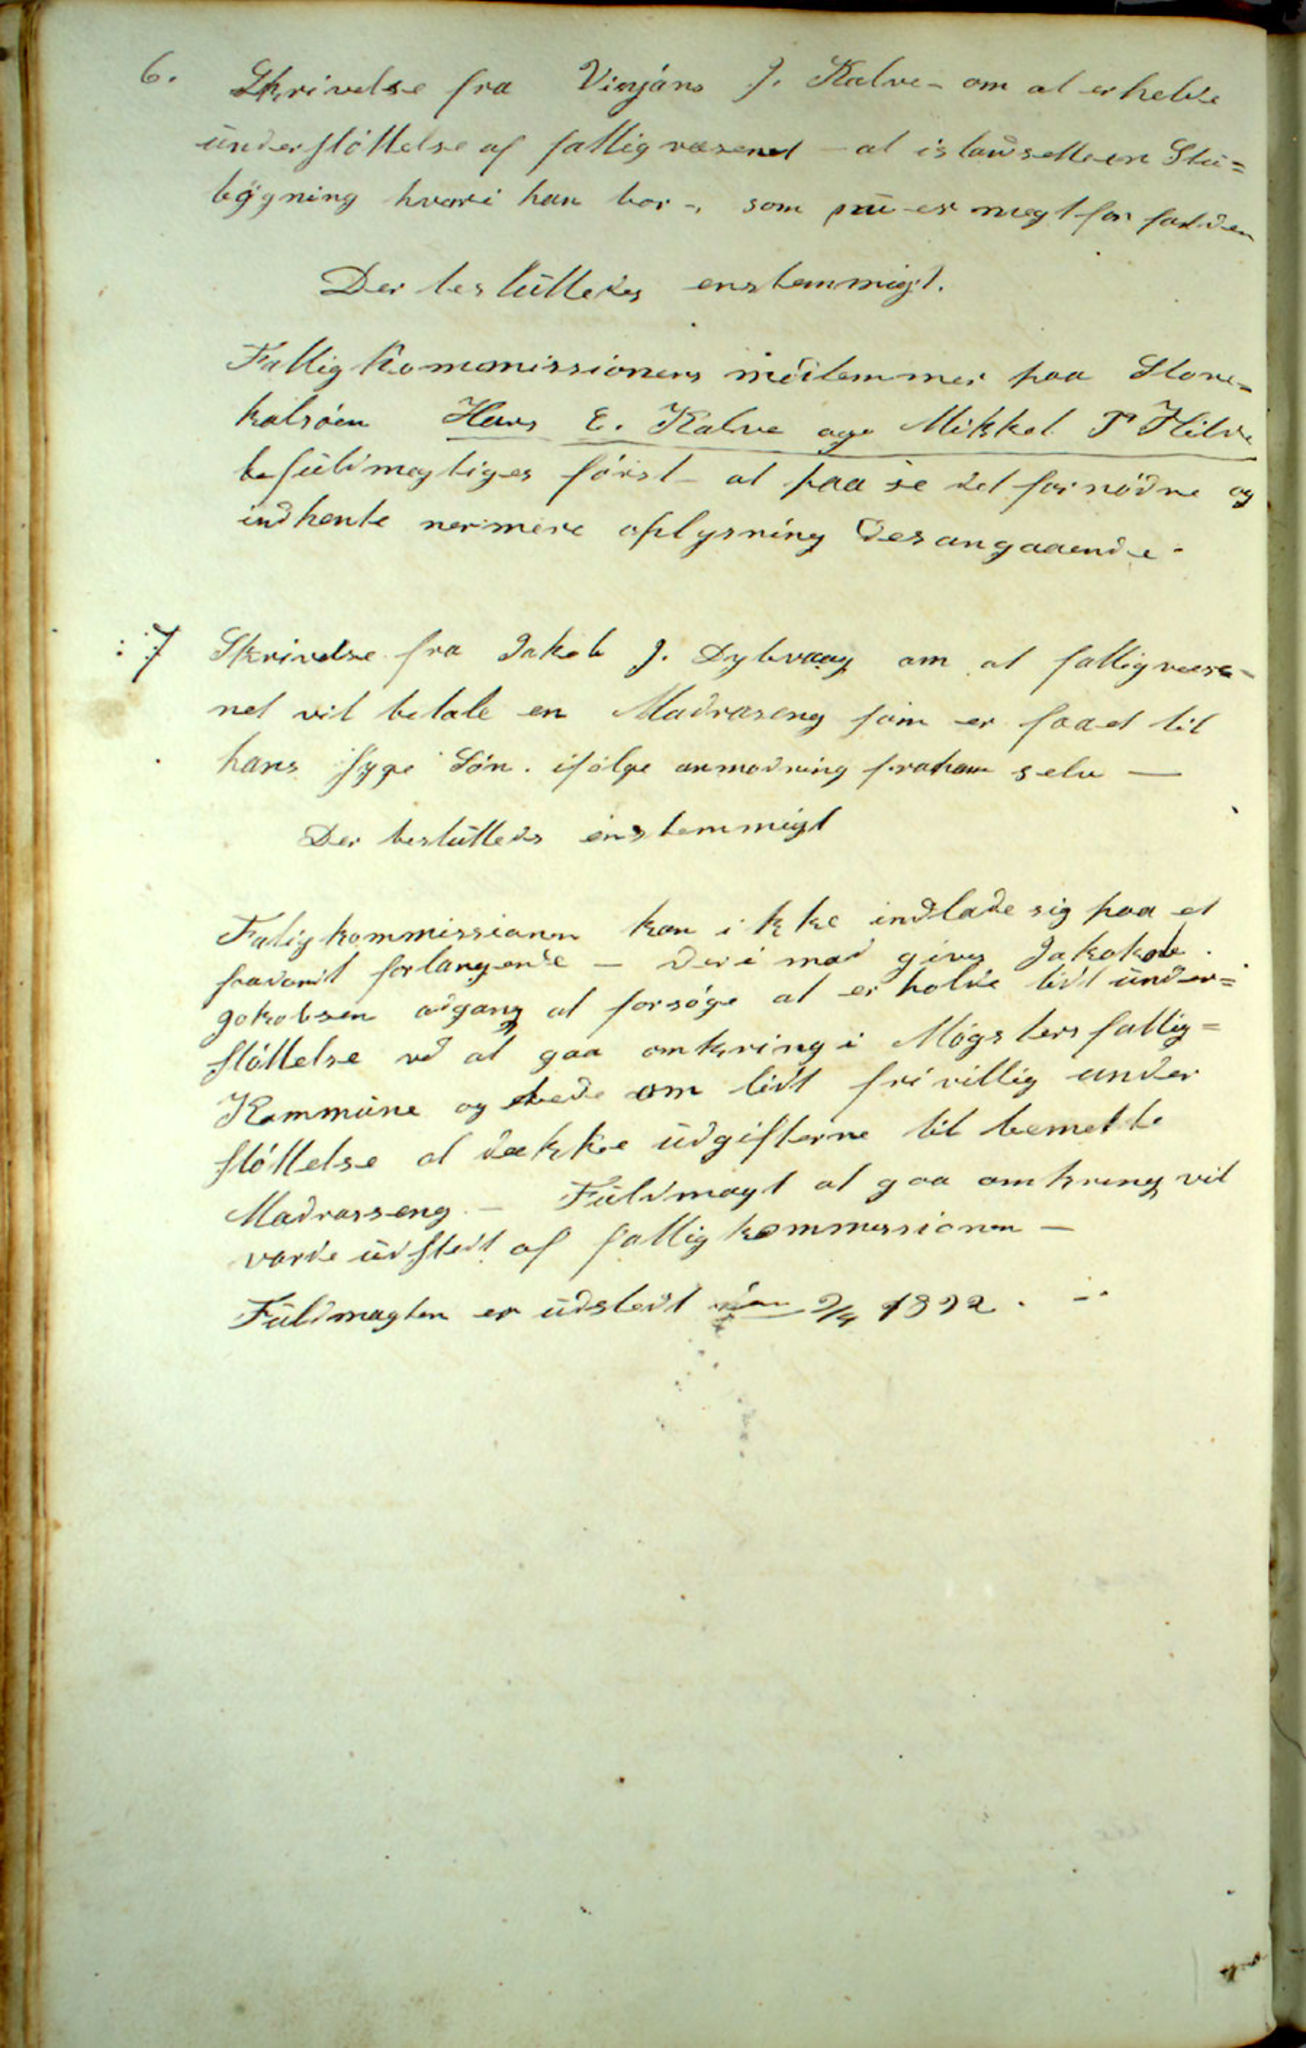 6. Skrivelse fra Vinjáns J. Kalve - om at erholde
understøttelse af fattigvæsenet - at istansette en Stu=
bygning hvori han bor -, som nu er megt forfalden
Der besluttedes enstemmigt.
Fattigkommissionens medlemmer paa Store-
kalsøen Hans E. Kalve og Mikkel P Hilde
befuldmægtiges først at paase det fornødne og
indhente nermere oplysning desangaaende.
7 Skrivelse fra Jakob J. Dybvaag om at fattigvæse-
net vil betale en Madraseng som er faaet til
hans syge Søn. ifølge anmodning fra ham selv —
Der besluttedes enstemmigt
Fatigkommissionen kan ikke indlade sig paa et
forlangende — derimod gives
Jakobsen adgang at forsøge at erholde lidt under=
støttelse ved at gaa omkring i Møgsters fattig=
Kommune og bede om lidt frivillig under
støttelse at dække udgifterne til bemelte
Madrasseng. — Fuldmagt at gaa omkring vil
vorde udstedt af fattigkommissionen —
Fuldmagten er udstedt den 2/4 1892.